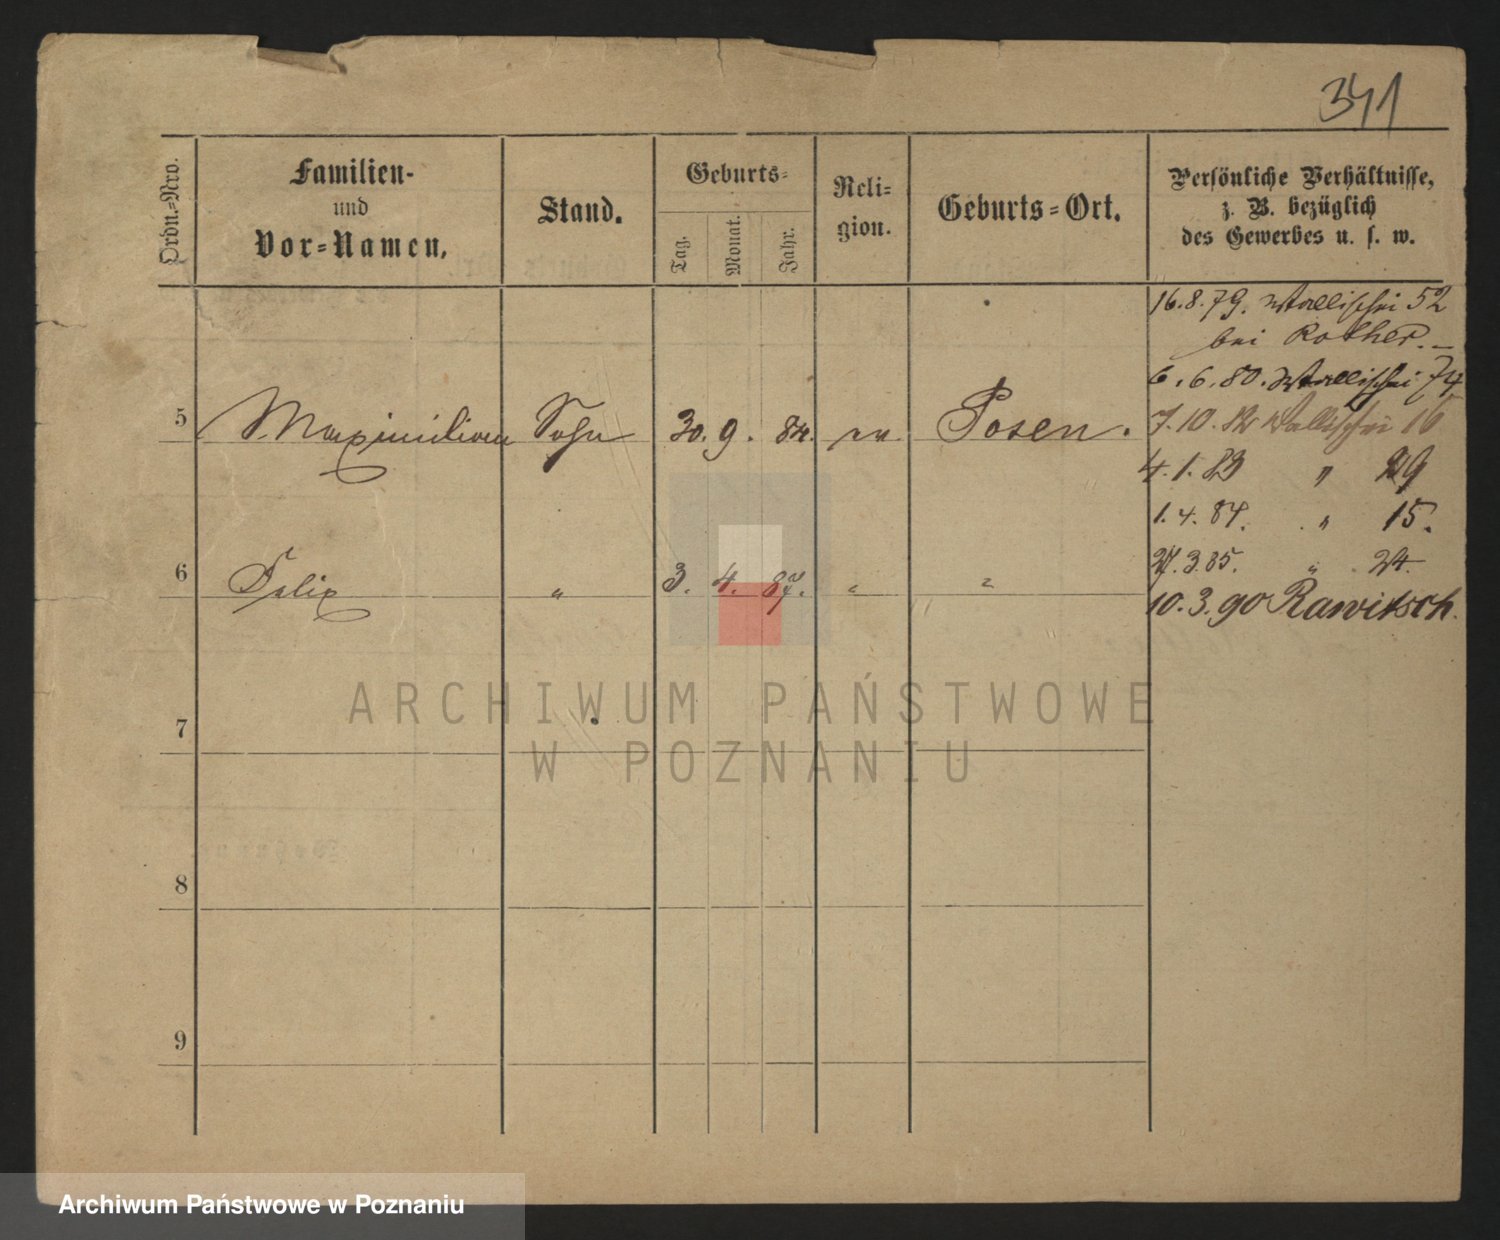 341
Ordn.-Nro.
Familien-
und
Vor-Namen.
Stand.
Geburts-
Tag.
Monat.
Jahr.
Reli-
gion.
Geburts-Ort.
Persönliche Verhältnisse,
z. B. bezüglich
des Gewerbes u. s. w.
16.8.79. Wallischei 52
bei Rother.
6.6.80. Wallischei 74
5 Maximilian Sohn 30. 9. Posen.
7.10. Wallischei 16
4.1.83 " 29
1.4.84. " 15.
6 Felix " 3. 4. 87. " "
27.3.85. " 24.
10.3.90 Rawitsch.
7
8
9
ARCHIWUM PAŃSTWOWE
W POZNANIU
Archiwum Państwowe w Poznaniu